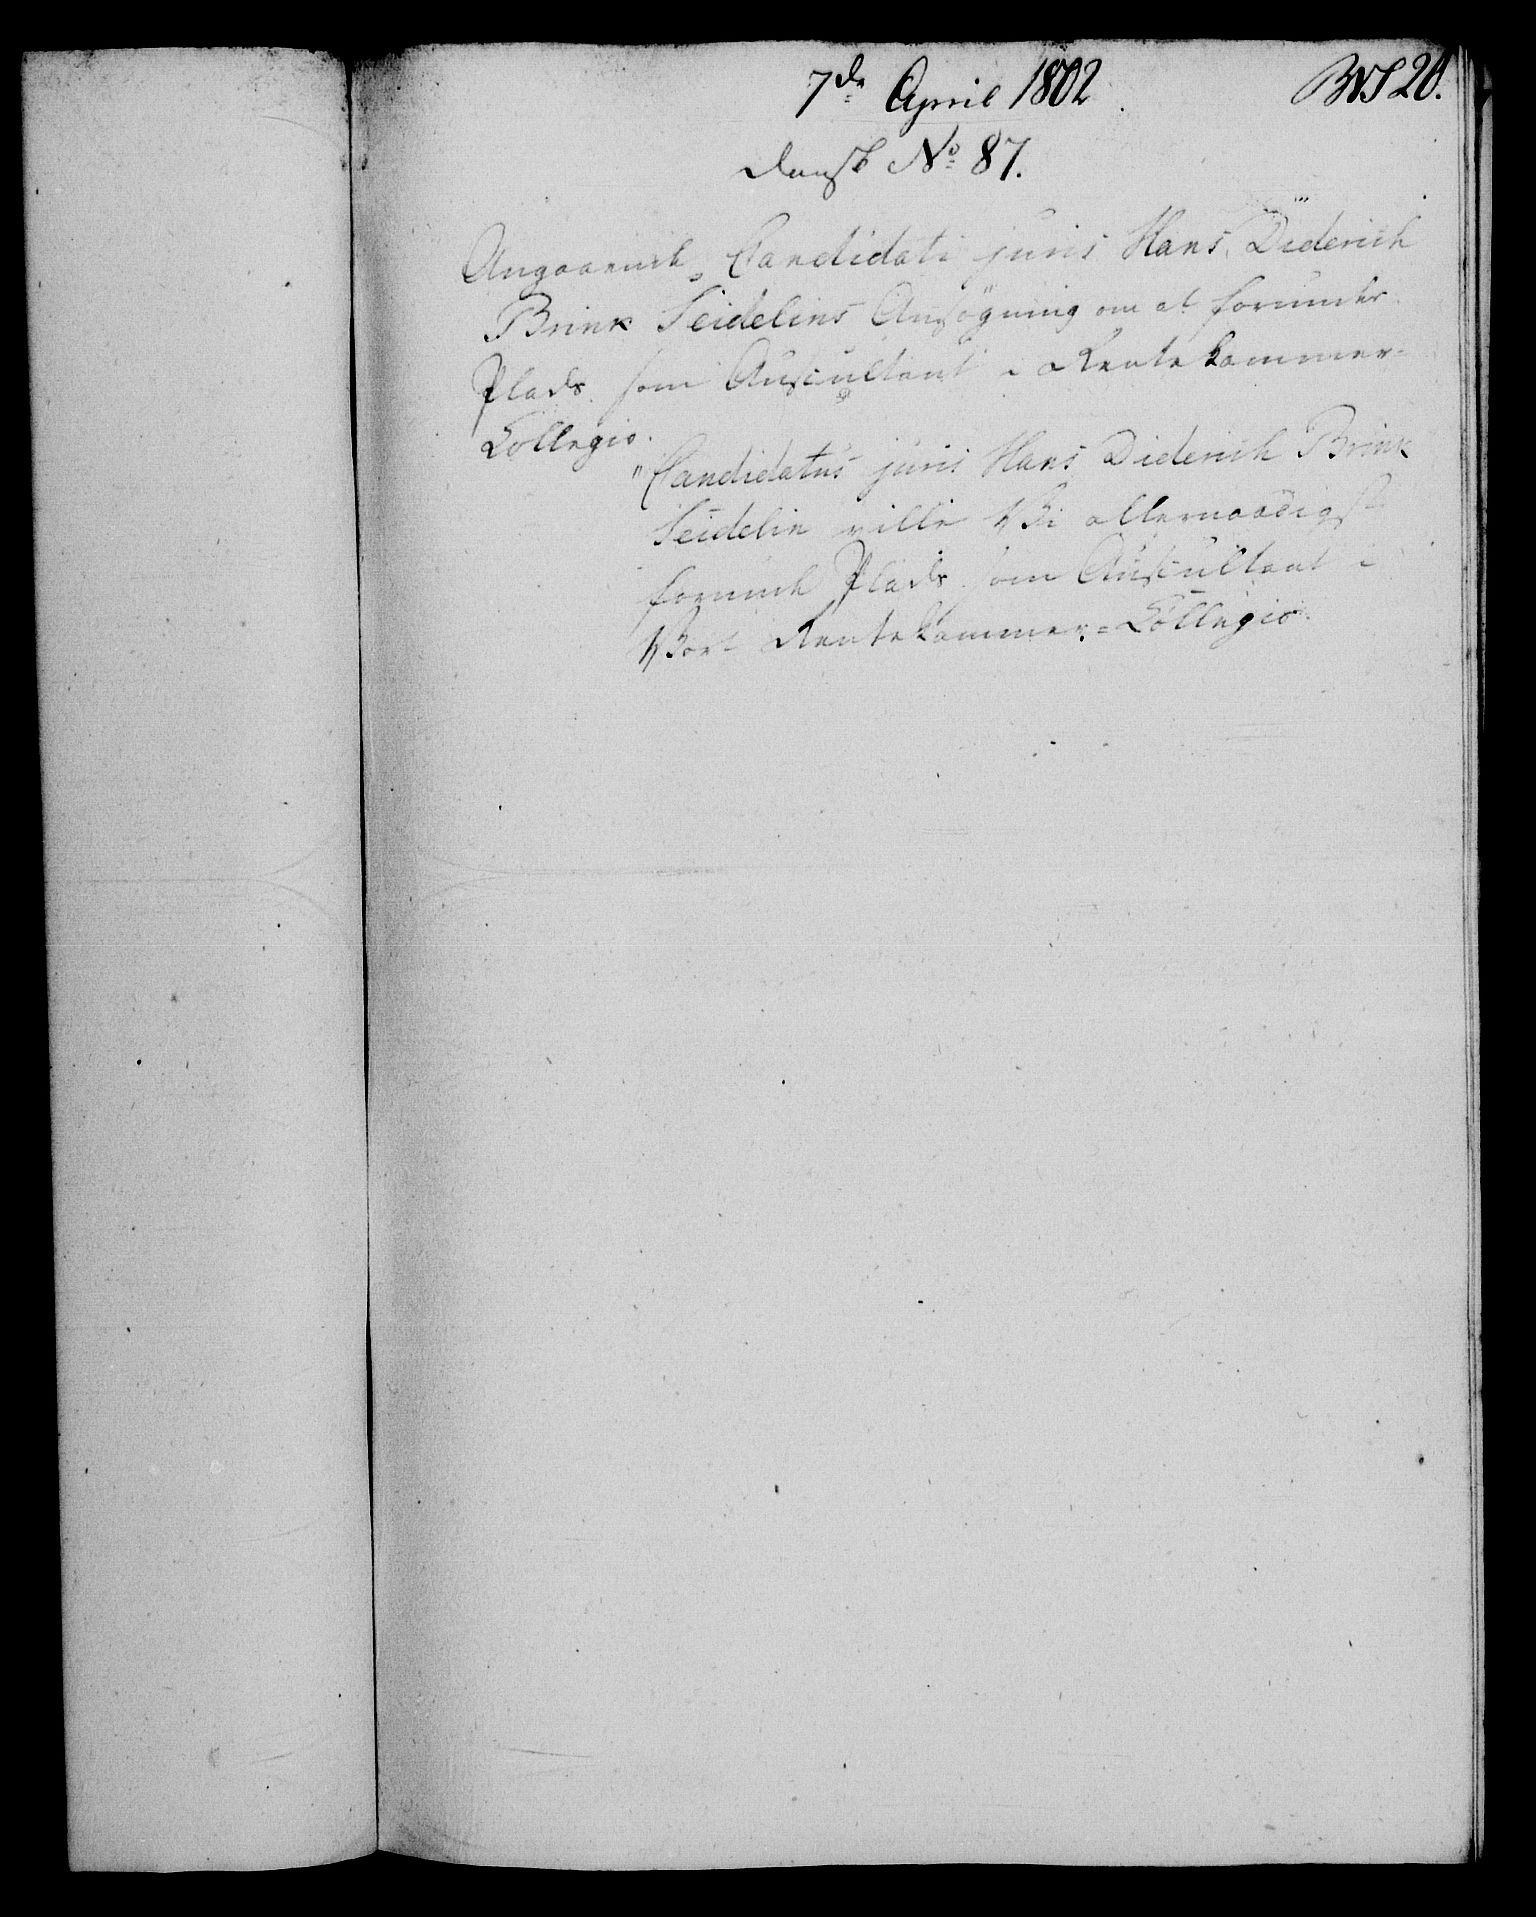 7de April 1802
No 20.
Dansk No 87.
Angaaende Candidati juris Hans Diderich
Brink Seidelins Ansögning om at forundes
Plads som Auscultant i Rentekammer-
Collegio.
"Candidatus juris Hans Diderich Brink
Seidelin ville Vi allernaadigst
forunde Plads som Auscultant i
Vort Rentekammer-Collegio.